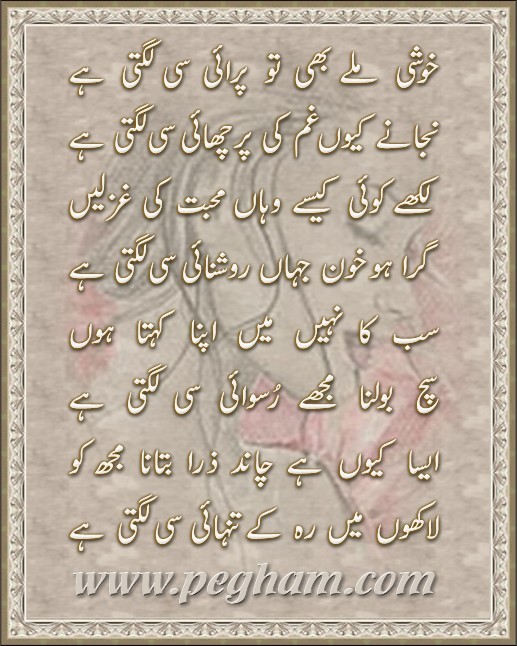 خوشی ملے بھی تو پرائی سی لگتی ہے
نجانے کیوں غم کی پرچھائی سی لگتی ہے
لکھے کوئی کیسے وہاں محبت کی غزلیں
گرا ہو خون جہاں روشنائی سی لگتی ہے
سب کا نہیں میں اپنا کہتا ہوں
سچ بولنا مجھے رُسوائی سی لگتی ہے
ایسا کیوں ہے چاند ذرا بتانا مجھ کو
لاکھوں میں رہ کے تنہائی سی لگتی ہے
www.pegham.com